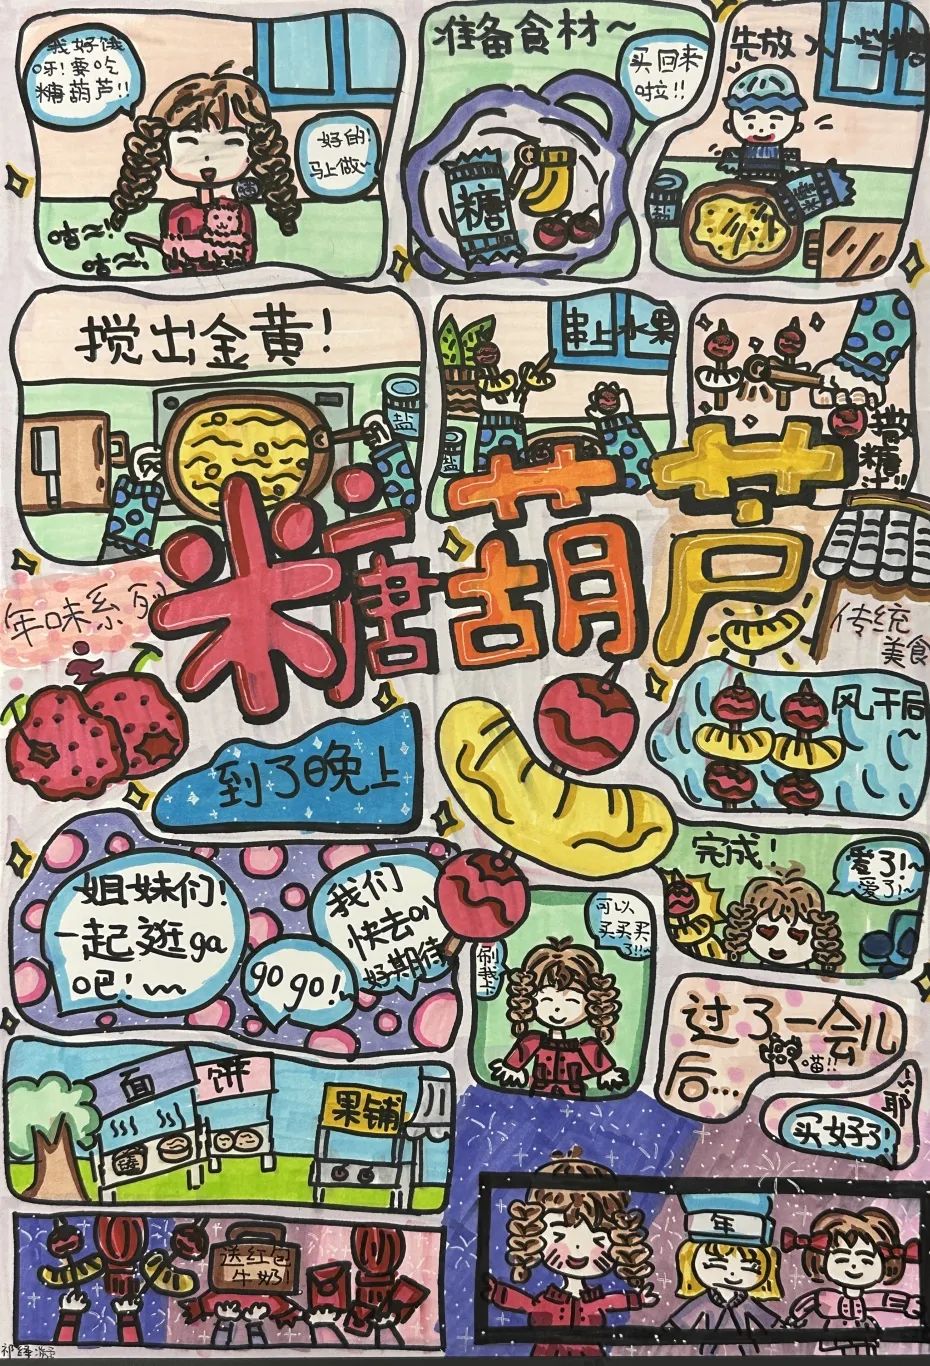 我好饿
呀!要吃
糖葫芦!!
好的!
马上做~
咕~!
咕~!
准备食材~
买回来
啦!!
糖
先放入一些糖
搅出金黄!
盐
串上水果
盐
糖葫芦
年味系列
传统
美食
风干后
~
到了晚上
完成!
爱了!~
爱了!~
姐妹们!
一起逛ga
吧!~
go go!
我们
快去
好期待
可以,
买买买
了!!
刷我
过了一会儿
后...
喵!!
耶
买好了!
面
饼
果铺
送红包
牛奶!
年